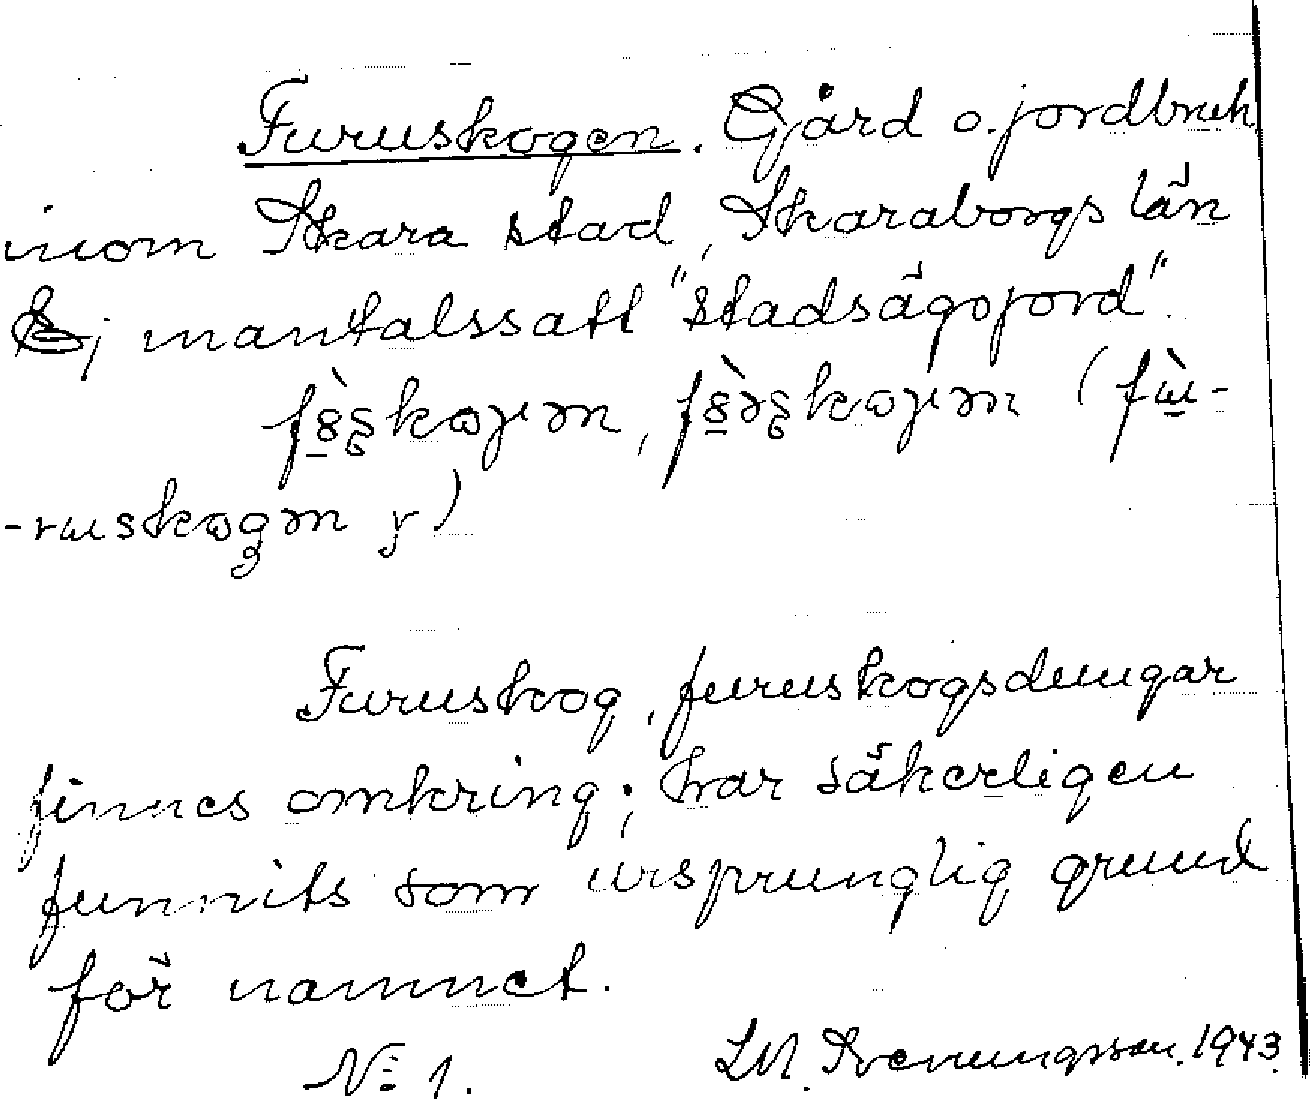 Furuskogen. Gård o. jordbruk
inom Skara stad, Skaraborgs län
Ej mantalssatt "stadsägojord".
-ruskogen y)
Furuskog, furuskogsdungar
finnes omkring; har säkerligen
funnits som ursprunglig grund
för namnet.
No 1. Svenungsson. 1943.